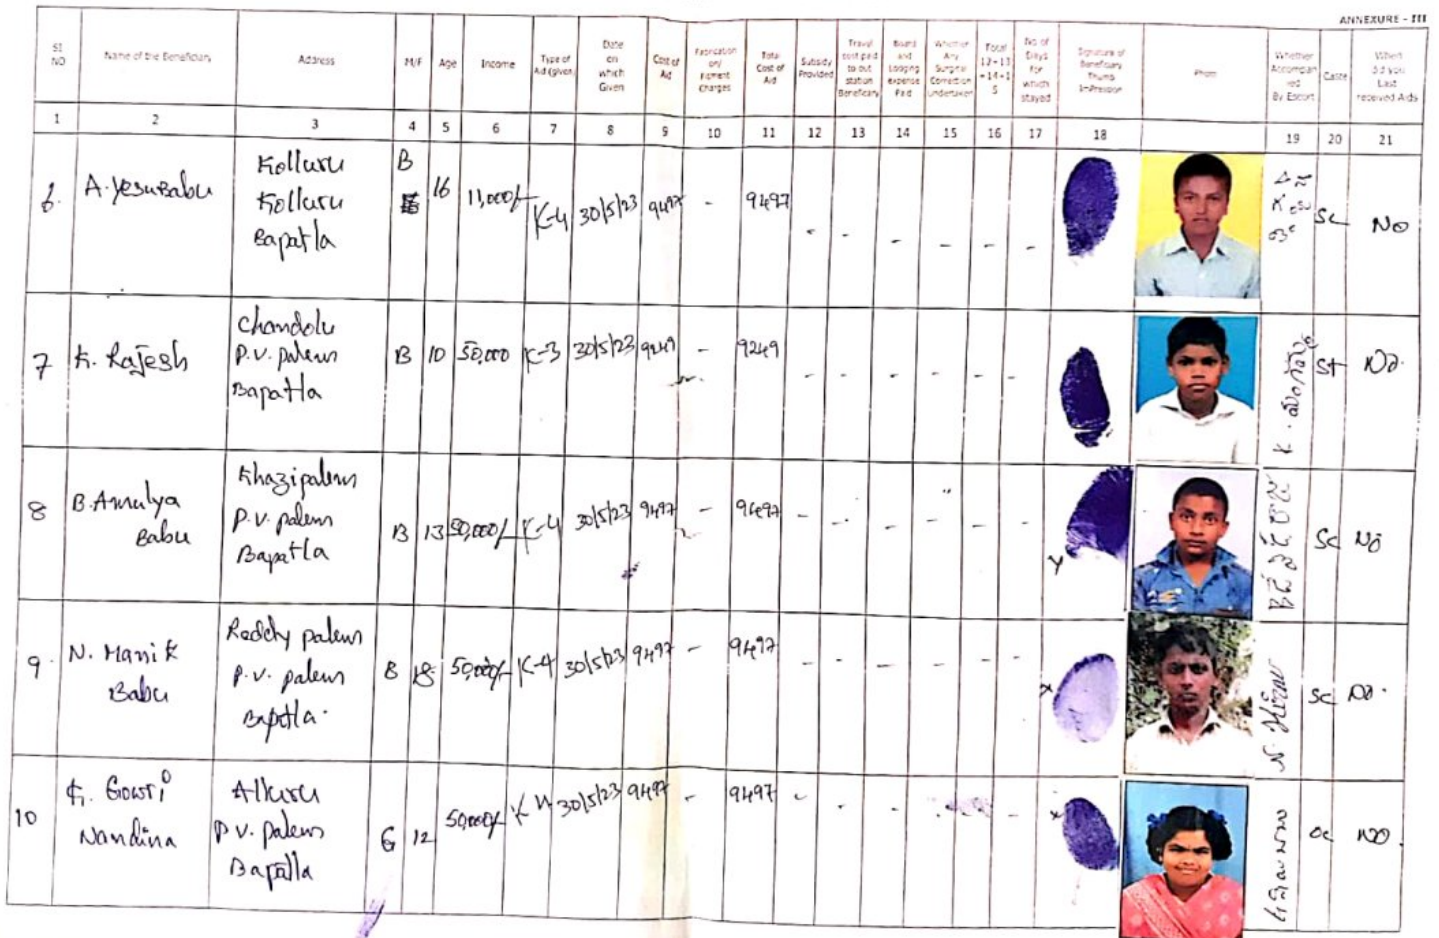 ANNEXURE - III
Sl NO | Name of the Beneficiary | Address | M/F | Age | Income | Type of Aid (given) | Date on which Given | Cost of Aid | Fabrication on/ Fitment Charges | Total Cost of Aid | Subsidy Provided | Travel cost paid to out station Beneficiary | Board and Lodging expense Paid | Whether Any Surgical Correction Undertaken | Total 12+13+14+15 | No of Days for which stayed | Signature of Beneficiary Thumb Impression | Photo | Whether Accompanied By Escort | Caste | When did you Last received Aids
1 2 3 4 5 6 7 8 9 10 11 12 13 14 15 16 17 18 19 20 21
6. A. Yesubabu | Kolluru | B | 16 | 11,000/- | K-4 | 30/5/23 | 9497 | - | 9497 | - - - - - - | SC | NO
Kolluru
Bapatla
7 K. Rajesh | Chandolu | B | 10 | 50,000 | K-3 | 30/5/23 | 9249 | - | 9249 | - - - - - - | ST | NO.
P.V. palem
Bapatla
8 B. Amulya Babu | Khazipalem | B | 13 | 50,000/- | K-4 | 30/5/23 | 9497 | - | 9497 | - - - - - - | SC | NO
P.V. palem
Bapatla
9. N. Manik Babu | Reddy palem | B | 18 | 50,000/- | K-4 | 30/5/23 | 9497 | - | 9497 | - - - - - - | SC | NO.
P.V. palem
Bapatla.
10 G. Gowri Nandina | Alluru | G | 12 | 50,000/- | K 4 | 30/5/23 | 9497 | - | 9497 | - - - - | OC | NO.
P.V. palem
Bapatla